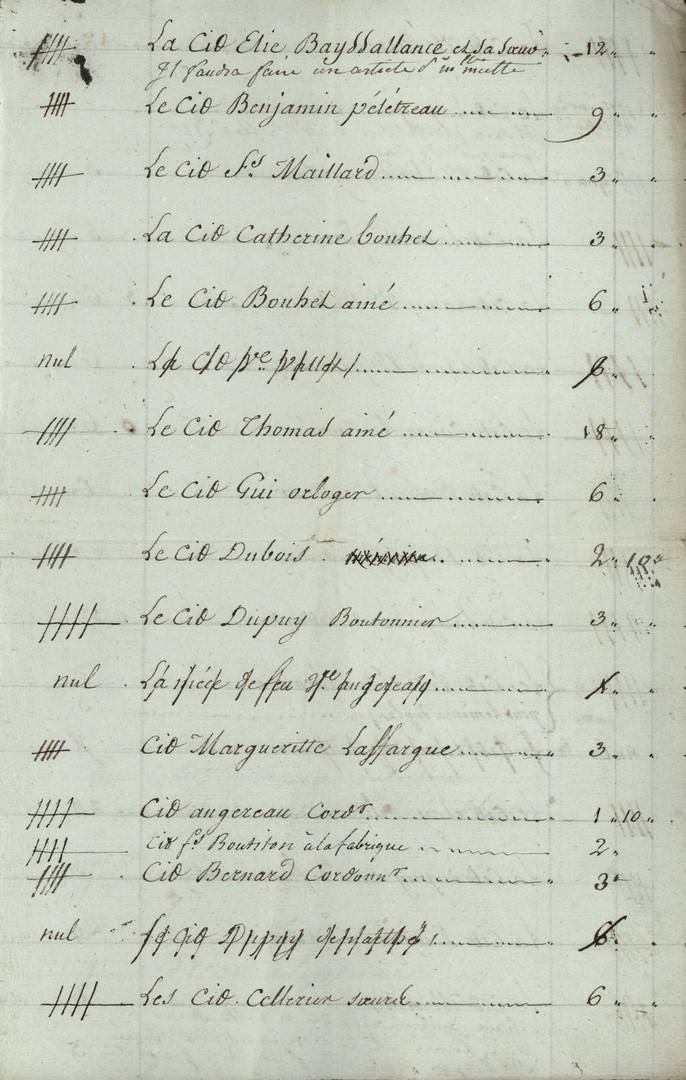 La Cid Elie Bayssallance et sa sœur. 12 „ „
Il faudra faire un article d'
Le Cid Benjamin pélétreau 9 „ „
Le Cid fs. Maillard 3 „ „
La Cid Catherine bouhet 3 „ „
Le Cid Bouhet ainé 6 „
nul La Cid ve 6 „
Le Cid Thomas ainé 18 „ „
Le Cid Gui orloger 6 „ „
Le Cid Dubois 2 „ 10 „
Le Cid Dupuy Boutonnier 3 „ „
nul La niéce de feu angereau „ „
Cid Margueritte Laffargue 3 „ „
Cid angereau Cordr 1 „ 10 „
Cid fs Boutiton à la fabrique 2 „
Cid Bernard Cordonnr 3 „
nul Le Cid Dupuy 6 „
Les Cid. Cellerier sœurs 6 „ „